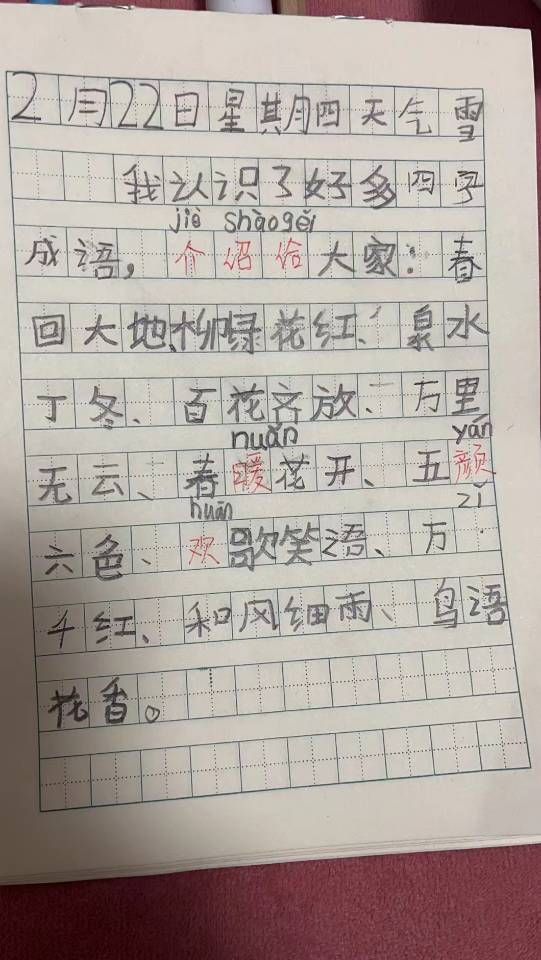 2月22日星期四天气雪
我认识了好多四字
jiè shàogěi
成语，介绍给大家：春
回大地、柳绿花红、泉水
丁冬、百花齐放、万里
nuǎn yán
无云、春暖花开、五颜
huān zǐ
六色、欢歌笑语、万
千红、和风细雨、鸟语
花香。